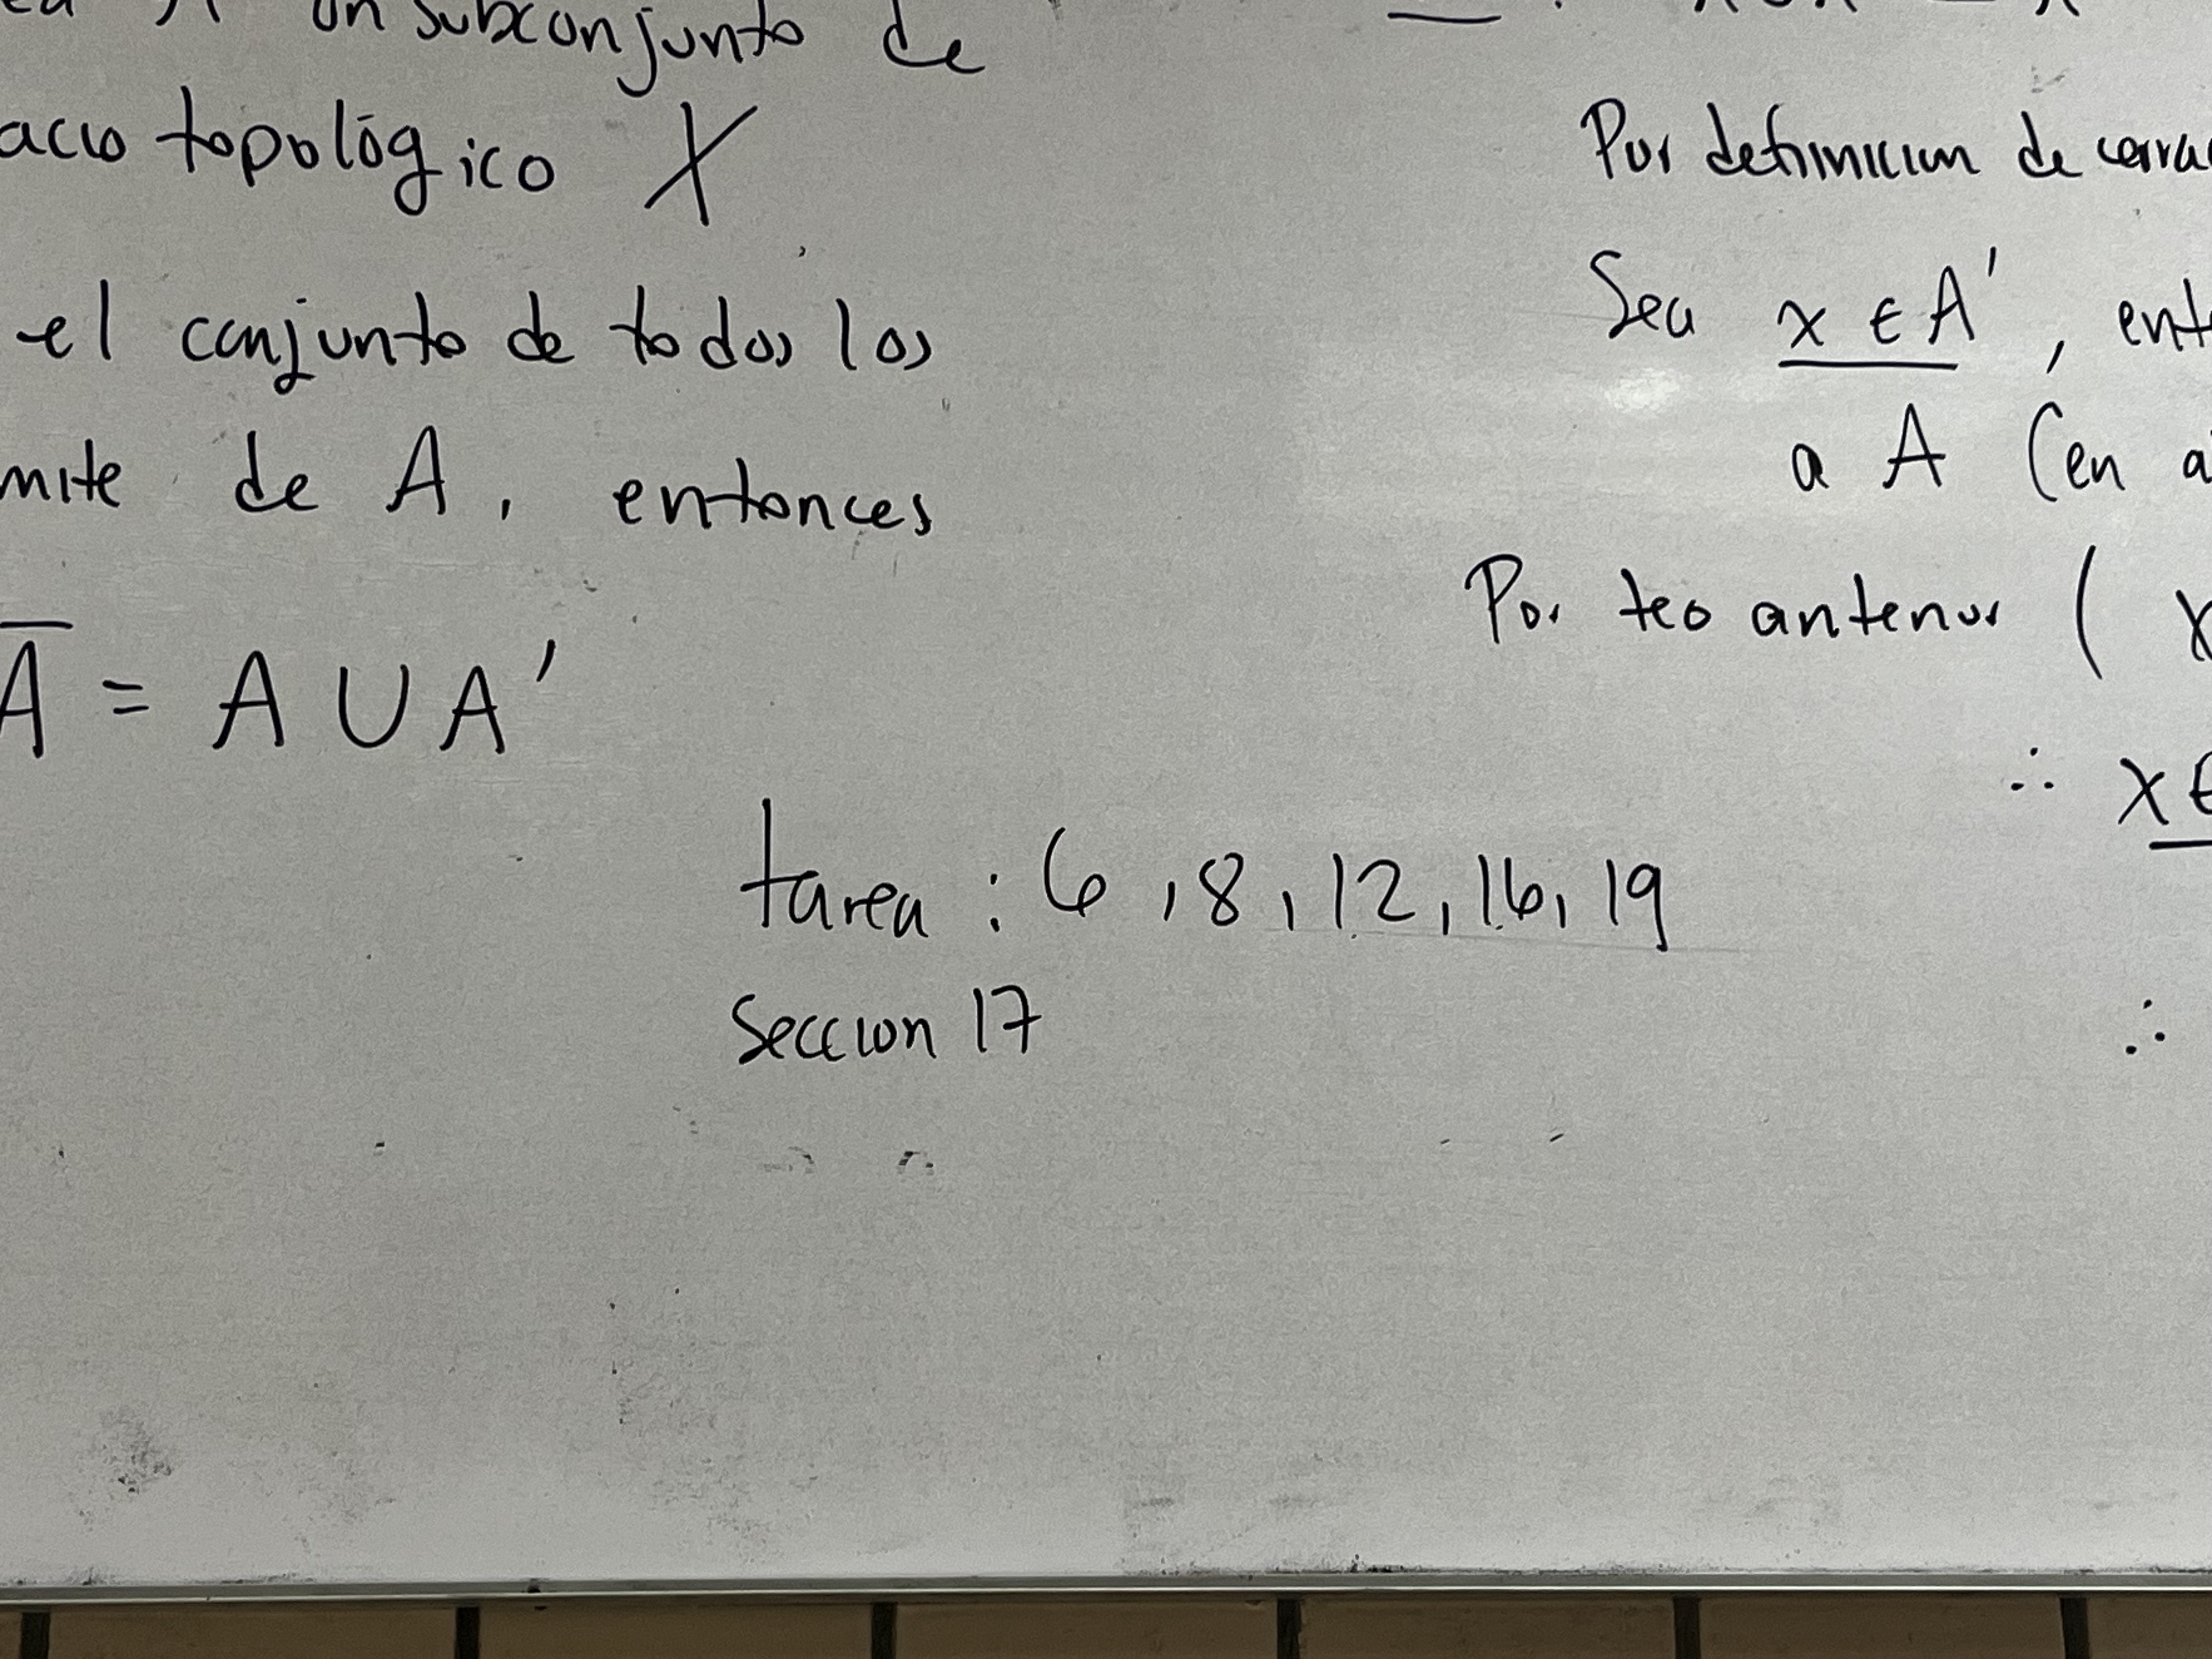 un subconjunto de
acio topológico X
el conjunto de todos los
mite de A, entonces
A̅ = A ∪ A'
tarea : 6, 8, 12, 16, 19
Seccion 17
Por definicion de cerra
Sea x ∈ A', ent
a A (en a
Por teo anterior ( x
∴ x ∈
∴